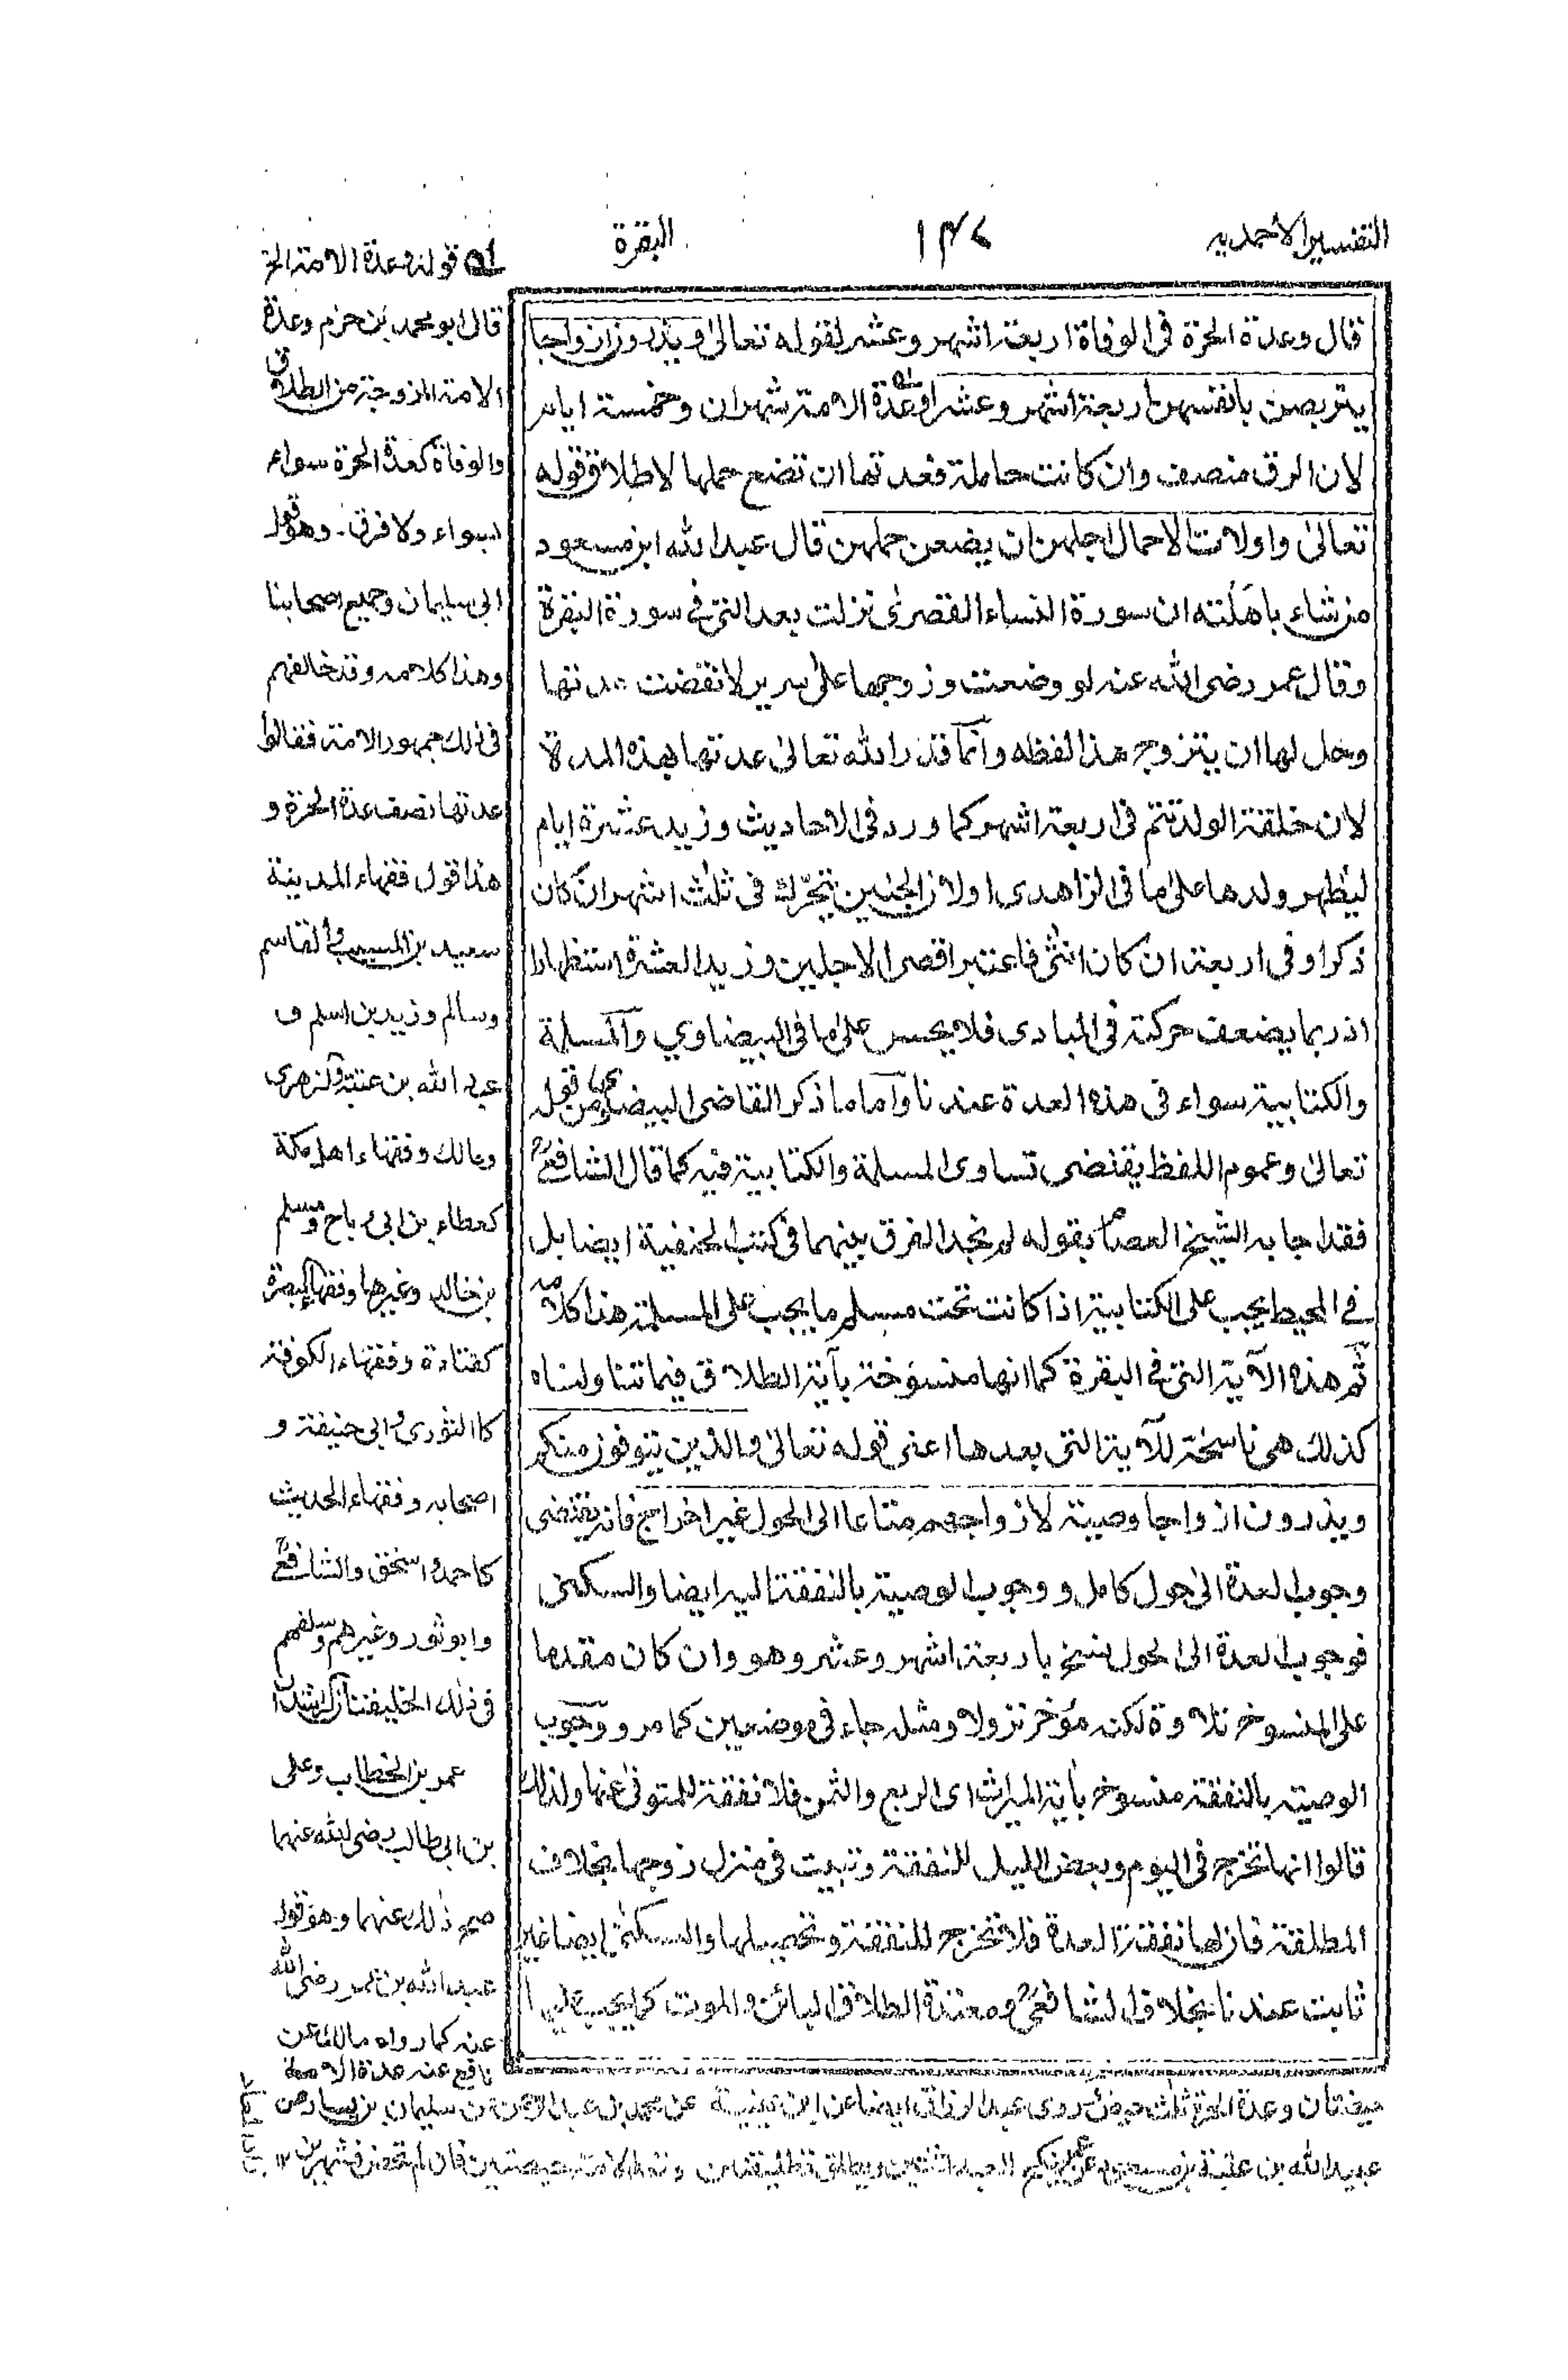 التفسير الاحمديه
١٣٧
البقرة
قال وعدة الحرة فى الوفاة اربعة اشهر وعشر لقوله تعالىٰ ويذرون ازواجا
يتربصن بانفسهن اربعة اشهر وعشرا وعدة الامة شهران وخمسة ايام
لان الرق منصف وان كانت حاملة فعدتها ان تضع حملها لاطلاق قوله
تعالىٰ واولات الاحمال اجلهن ان يضعن حملهن قال عبد الله ابن مسعود
من شاء باهلته ان سورة النساء القصرىٰ نزلت بعد التى فى سورة البقرة
وقال عمر رضى الله عنه لو وضعت وزوجها علىٰ سرير لانقضت عدتها
وحل لها ان يتزوج هذا لفظه وانما قدر الله تعالىٰ عدتها بهذه المدة
لان خلقة الولد تتم فى اربعة اشهر كما ورد فى الاحاديث وزيد عشرة ايام
ليظهر ولدها علىٰ ما فى الزاهدى او لان الجنين يتحرك فى ثلث اشهر ان كان
ذكرا وفى اربعة ان كان انثىٰ فاعتبر اقصر الاجلين وزيد العشرة استظهارا
اذ ربما يضعف حركته فى المبادى فلا يحس علىٰ ما فى البيضاوي والمسلمة
والكتابية سواء فى هذه العدة عندنا واما ما ذكر القاضى البيضاوى من قوله
تعالىٰ وعموم اللفظ يقتضى تساوى المسلمة والكتابية فيه كما قال الشافعىؒ
فقد اجابه الشيخ العصام بقوله لم نجد الفرق بينهما فى كتب الحنفية ايضا بل
فى المحيط يجب على الكتابية اذا كانت تحت مسلم ما يجب على المسلمة هذا كلامه
ثم هذه الآية التى فى البقرة كما انها منسوخة بآية الطلاق فيما تناولناه
كذلك هى ناسخة للآية التى بعدها اعنى قوله تعالىٰ والذين يتوفون منكم
ويذرون ازواجا وصية لازواجهم متاعا الى الحول غير اخراج فانه يقتضى
وجوب العدة الىٰ حول كامل ووجوب الوصية بالنفقة اليه ايضا والسكنى
فوجوب العدة الى الحول نسخ باربعة اشهر وعشر وهو وان كان مقدما
على المنسوخ تلاوة لكنه مؤخر نزولا ومثله جاء فى موضعين كما مر ووجوب
الوصية بالنفقة منسوخ بأية الميراث اى الربع والثمن فلا نفقة للمتوفىٰ عنها ولذلك
قالوا انها تخرج فى اليوم وبعض الليل للنفقة وتبيت فى منزل زوجها بخلاف
المطلقة فان لها نفقة العدة فلا تخرج للنفقة وتحصيلها والسكنىٰ ايضا غير
ثابت عندنا بخلاف الشافعىؒ ومعتدة الطلاق البائن والموت كما يجب عليها
قوله وعدة الامة الخ
قال ابو محمد بن حزم وعدة
الامة المزوجة من الطلاق
والوفاة كعدة الحرة سواء
بسواء ولا فرق ۔ وهو قول
ابى سليمان وجميع اصحابنا
وهذا كلامه وقد خالفهم
فى ذلك جمهور الامة فقالوا
عدتها نصف عدة الحرة و
هذا قول فقهاء المدينة
سعيد بن المسيب والقاسم
وسالم وزيد بن اسلم و
عبد الله بن عتبة والزهرى
ومالك وفقهاء اهل مكة
كعطاء بن ابى رباح ومسلم
بن خالد وغيرهما وفقهاء البصرة
كقتادة وفقهاء الكوفة
كالثورى وابى حنيفة و
اصحابه وفقهاء الحديث
كاحمد واسحٰق والشافعىؒ
وابو ثور وغيرهم وسلفهم
فى ذلك الخليفتان الراشدان
عمر بن الخطاب وعلى
بن ابى طالب رضى الله عنهما
صح ذلك عنهما وهو قول
عبد الله بن عمر رضى الله
عنه كما رواه مالك عن
نافع عنه عدة الامة
حيضتان وعدة الحرة ثلث حيض روى عبد الرزاق ايضا عن ابن عيينة عن محمد بن عبد الرحمن عن سليمان بن يسار عن
عبد الله بن عتبة بن مسعود عن عمر ينكح العبد اثنتين ويطلق تطليقتين وتعتد الامة حيضتين فان لم تحض فشهرين ١٢